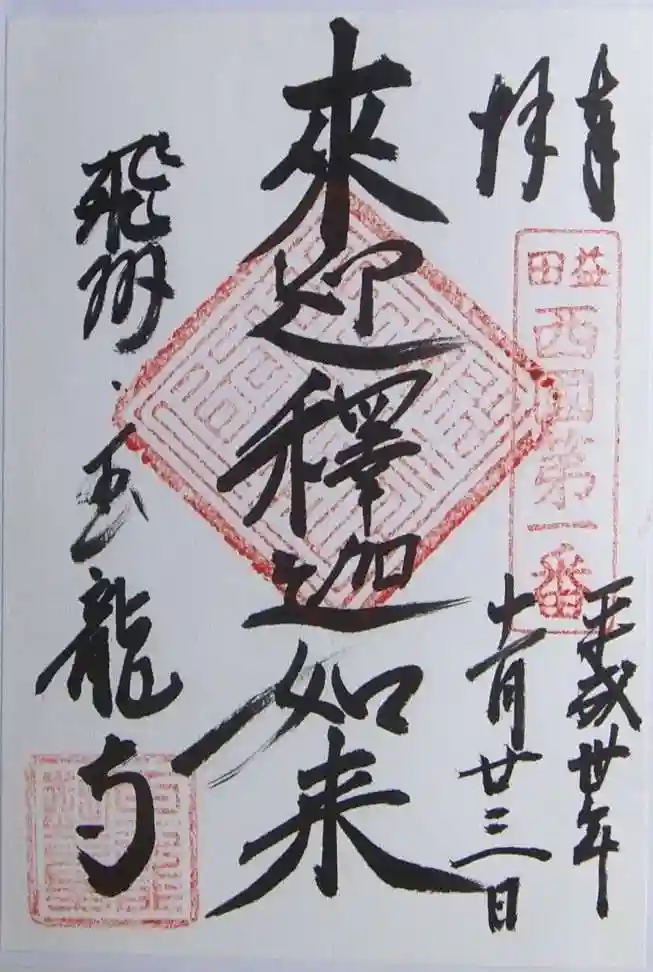 奉拝
益田
西国第一番
平成卅年
十一月廿三日
來迎釋迦如来
飛州 玉龍寺